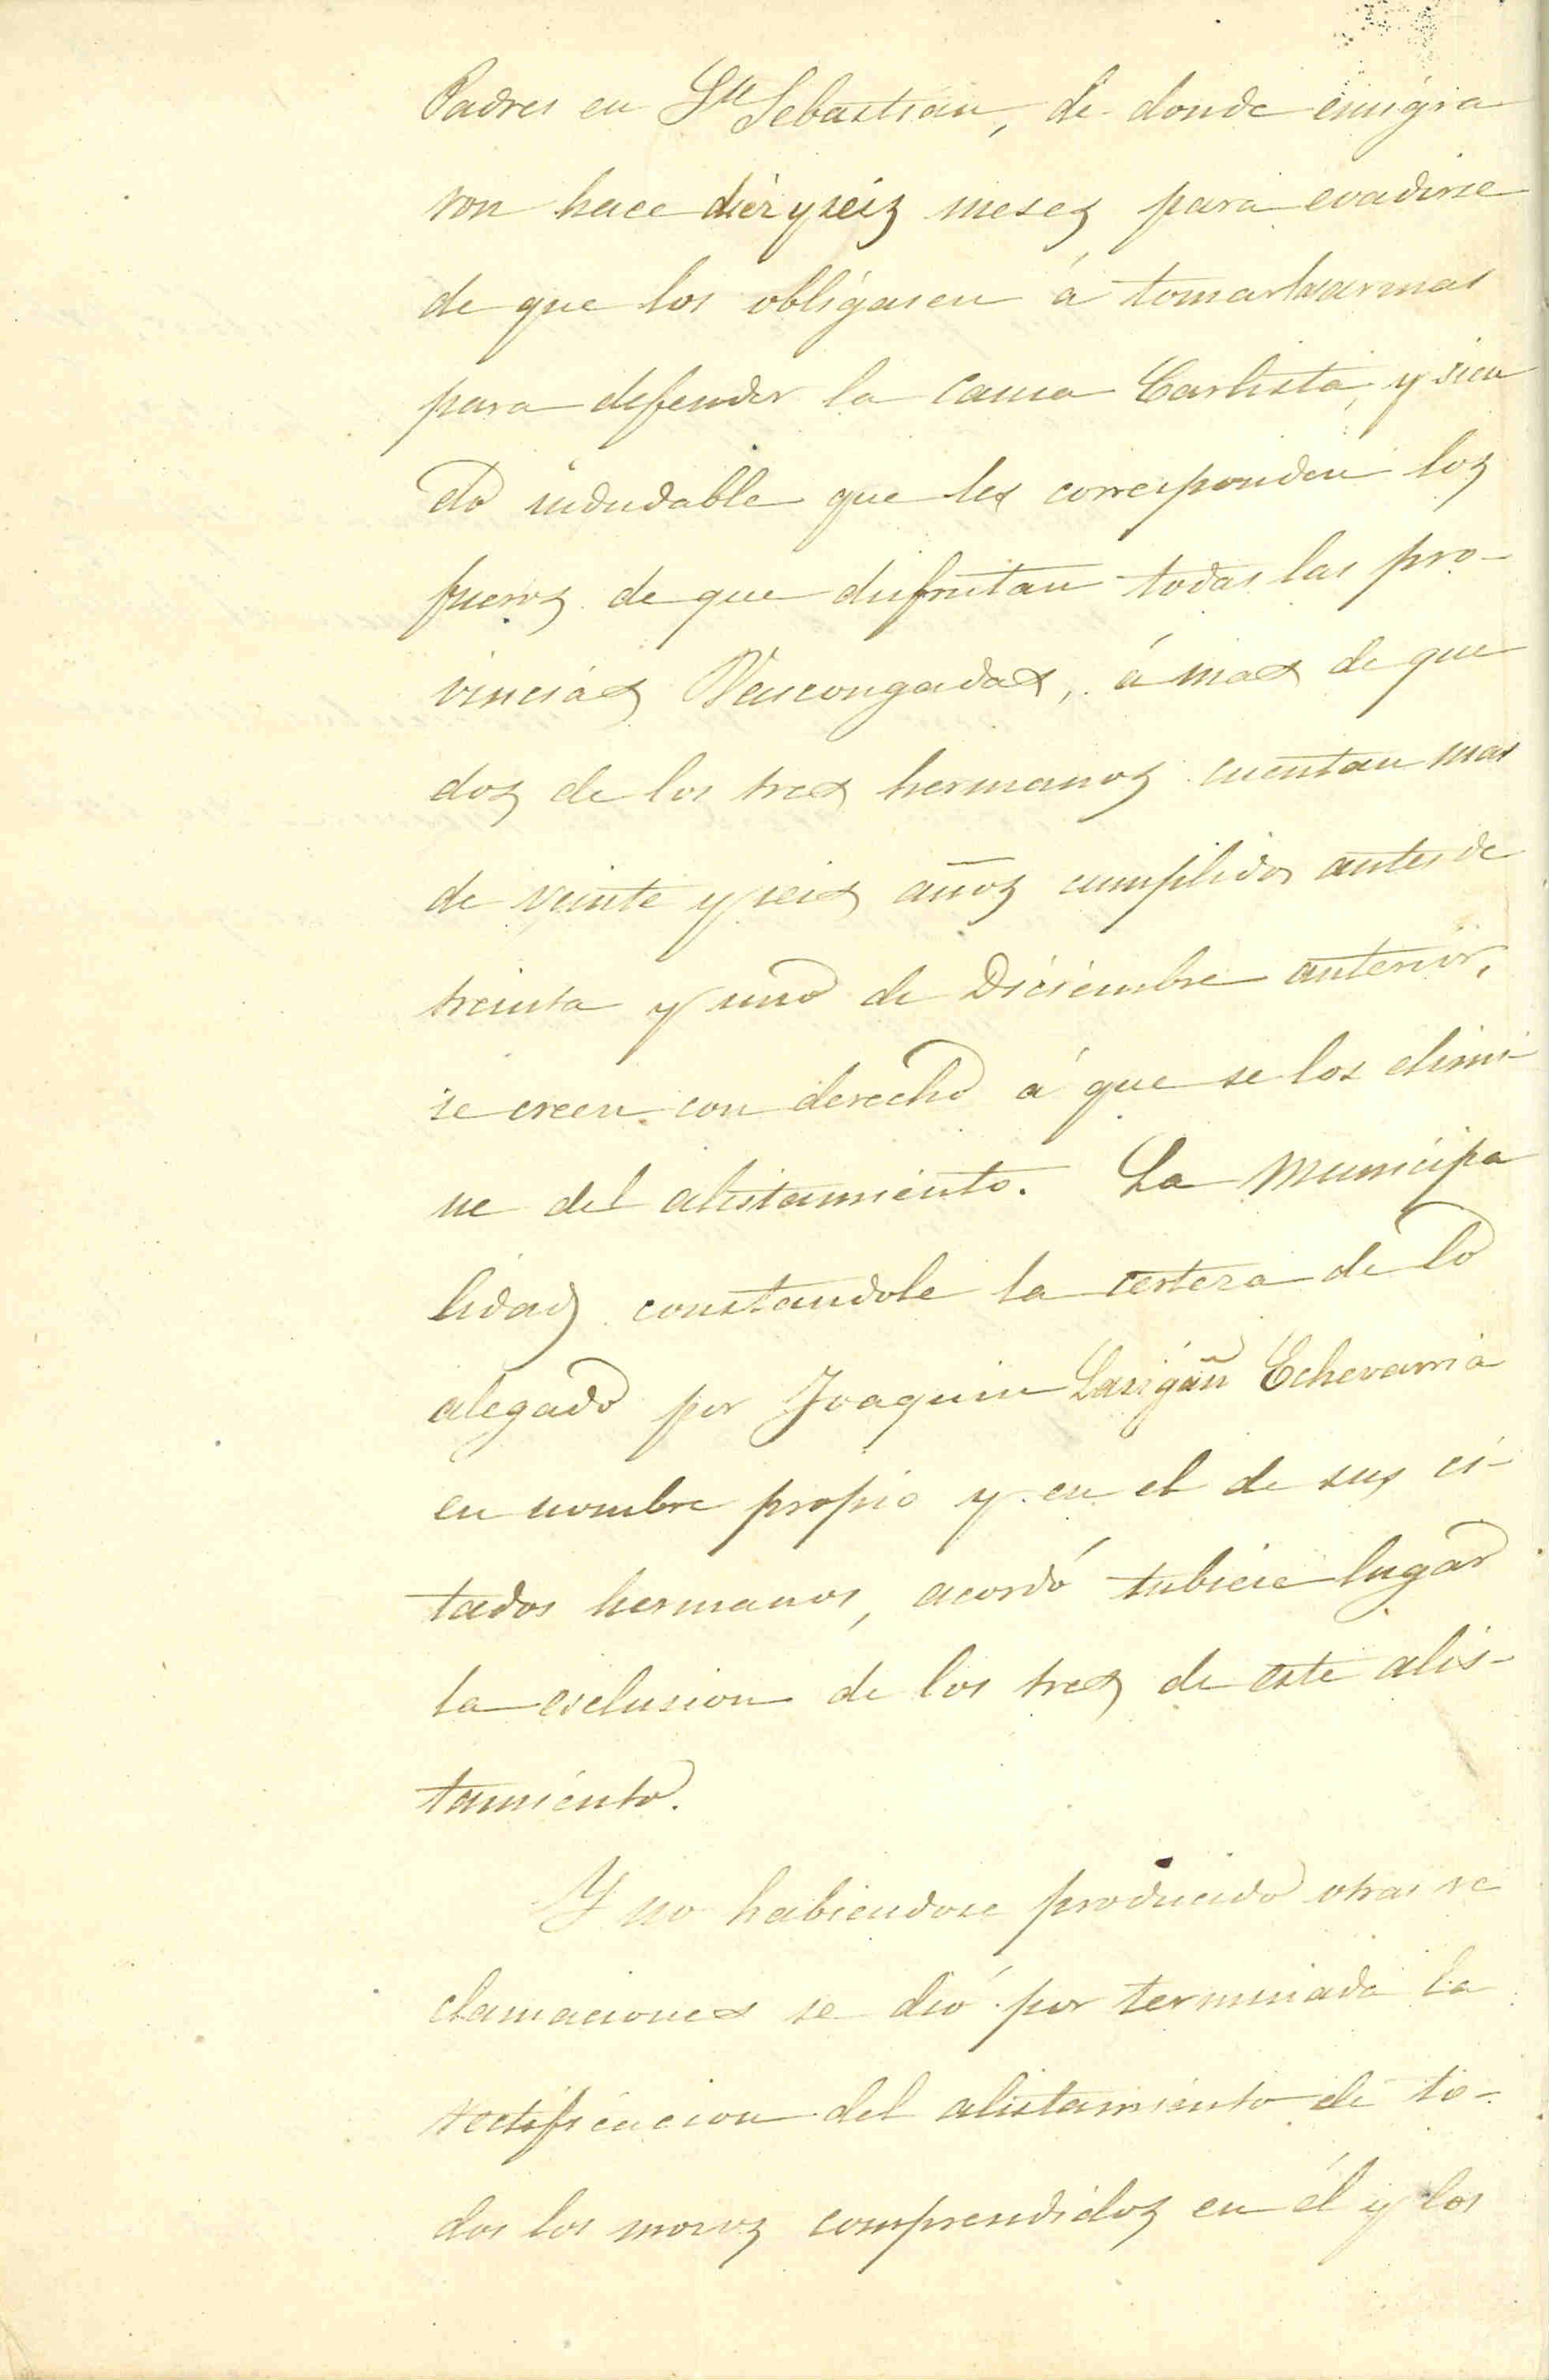 Padres en Sn Sebastian, de donde emigra
ron hace diez y seis meses para evadirse
de que los obligasen á tomar las armas
para defender la causa Carlista, y sien
do indudable que les corresponden los
fueros de que disfrutan todas las pro-
vincias Vascongadas, á mas de que
dos de los tres hermanos cuentan mas
de veinte y seis años cumplidos antes de
treinta y uno de Diciembre anterior,
se creen con derecho á que se los elimi-
ne del alistamiento. La Municipa
lidad constandole la certeza de lo
alegado por Joaquin Echevarria
en nombre propio y en el de sus ci-
tados hermanos, acordó tubiese lugar
la esclusion de los tres de este alis-
tamiento.
Y no habiendose producido otras re
clamaciones se dió por terminada la
rectificacion del alistamiento de to-
dos los mozos comprendidos en él y los